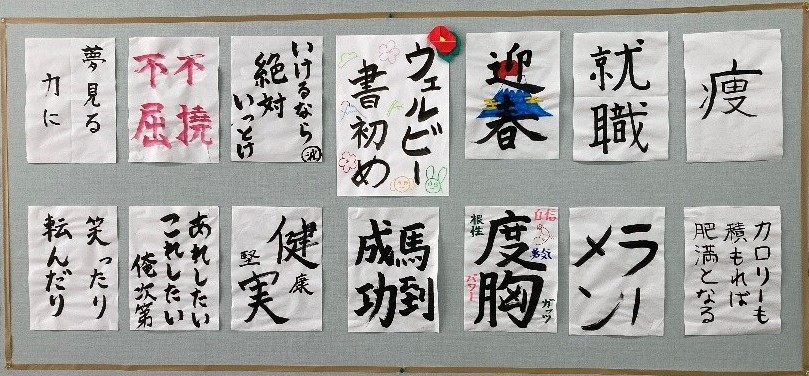 夢見る
力に
不撓
不屈
いけるなら
絶対
いっとけ
ウェルビー
書初め
迎春
就職
痩
笑ったり
転んだり
あれしたい
これしたい
俺次第
健康
堅実
馬到
成功
自信
勇気
ガッツ
度胸
根性
パワー
ラー
メン
カロリーも
積もれば
肥満となる